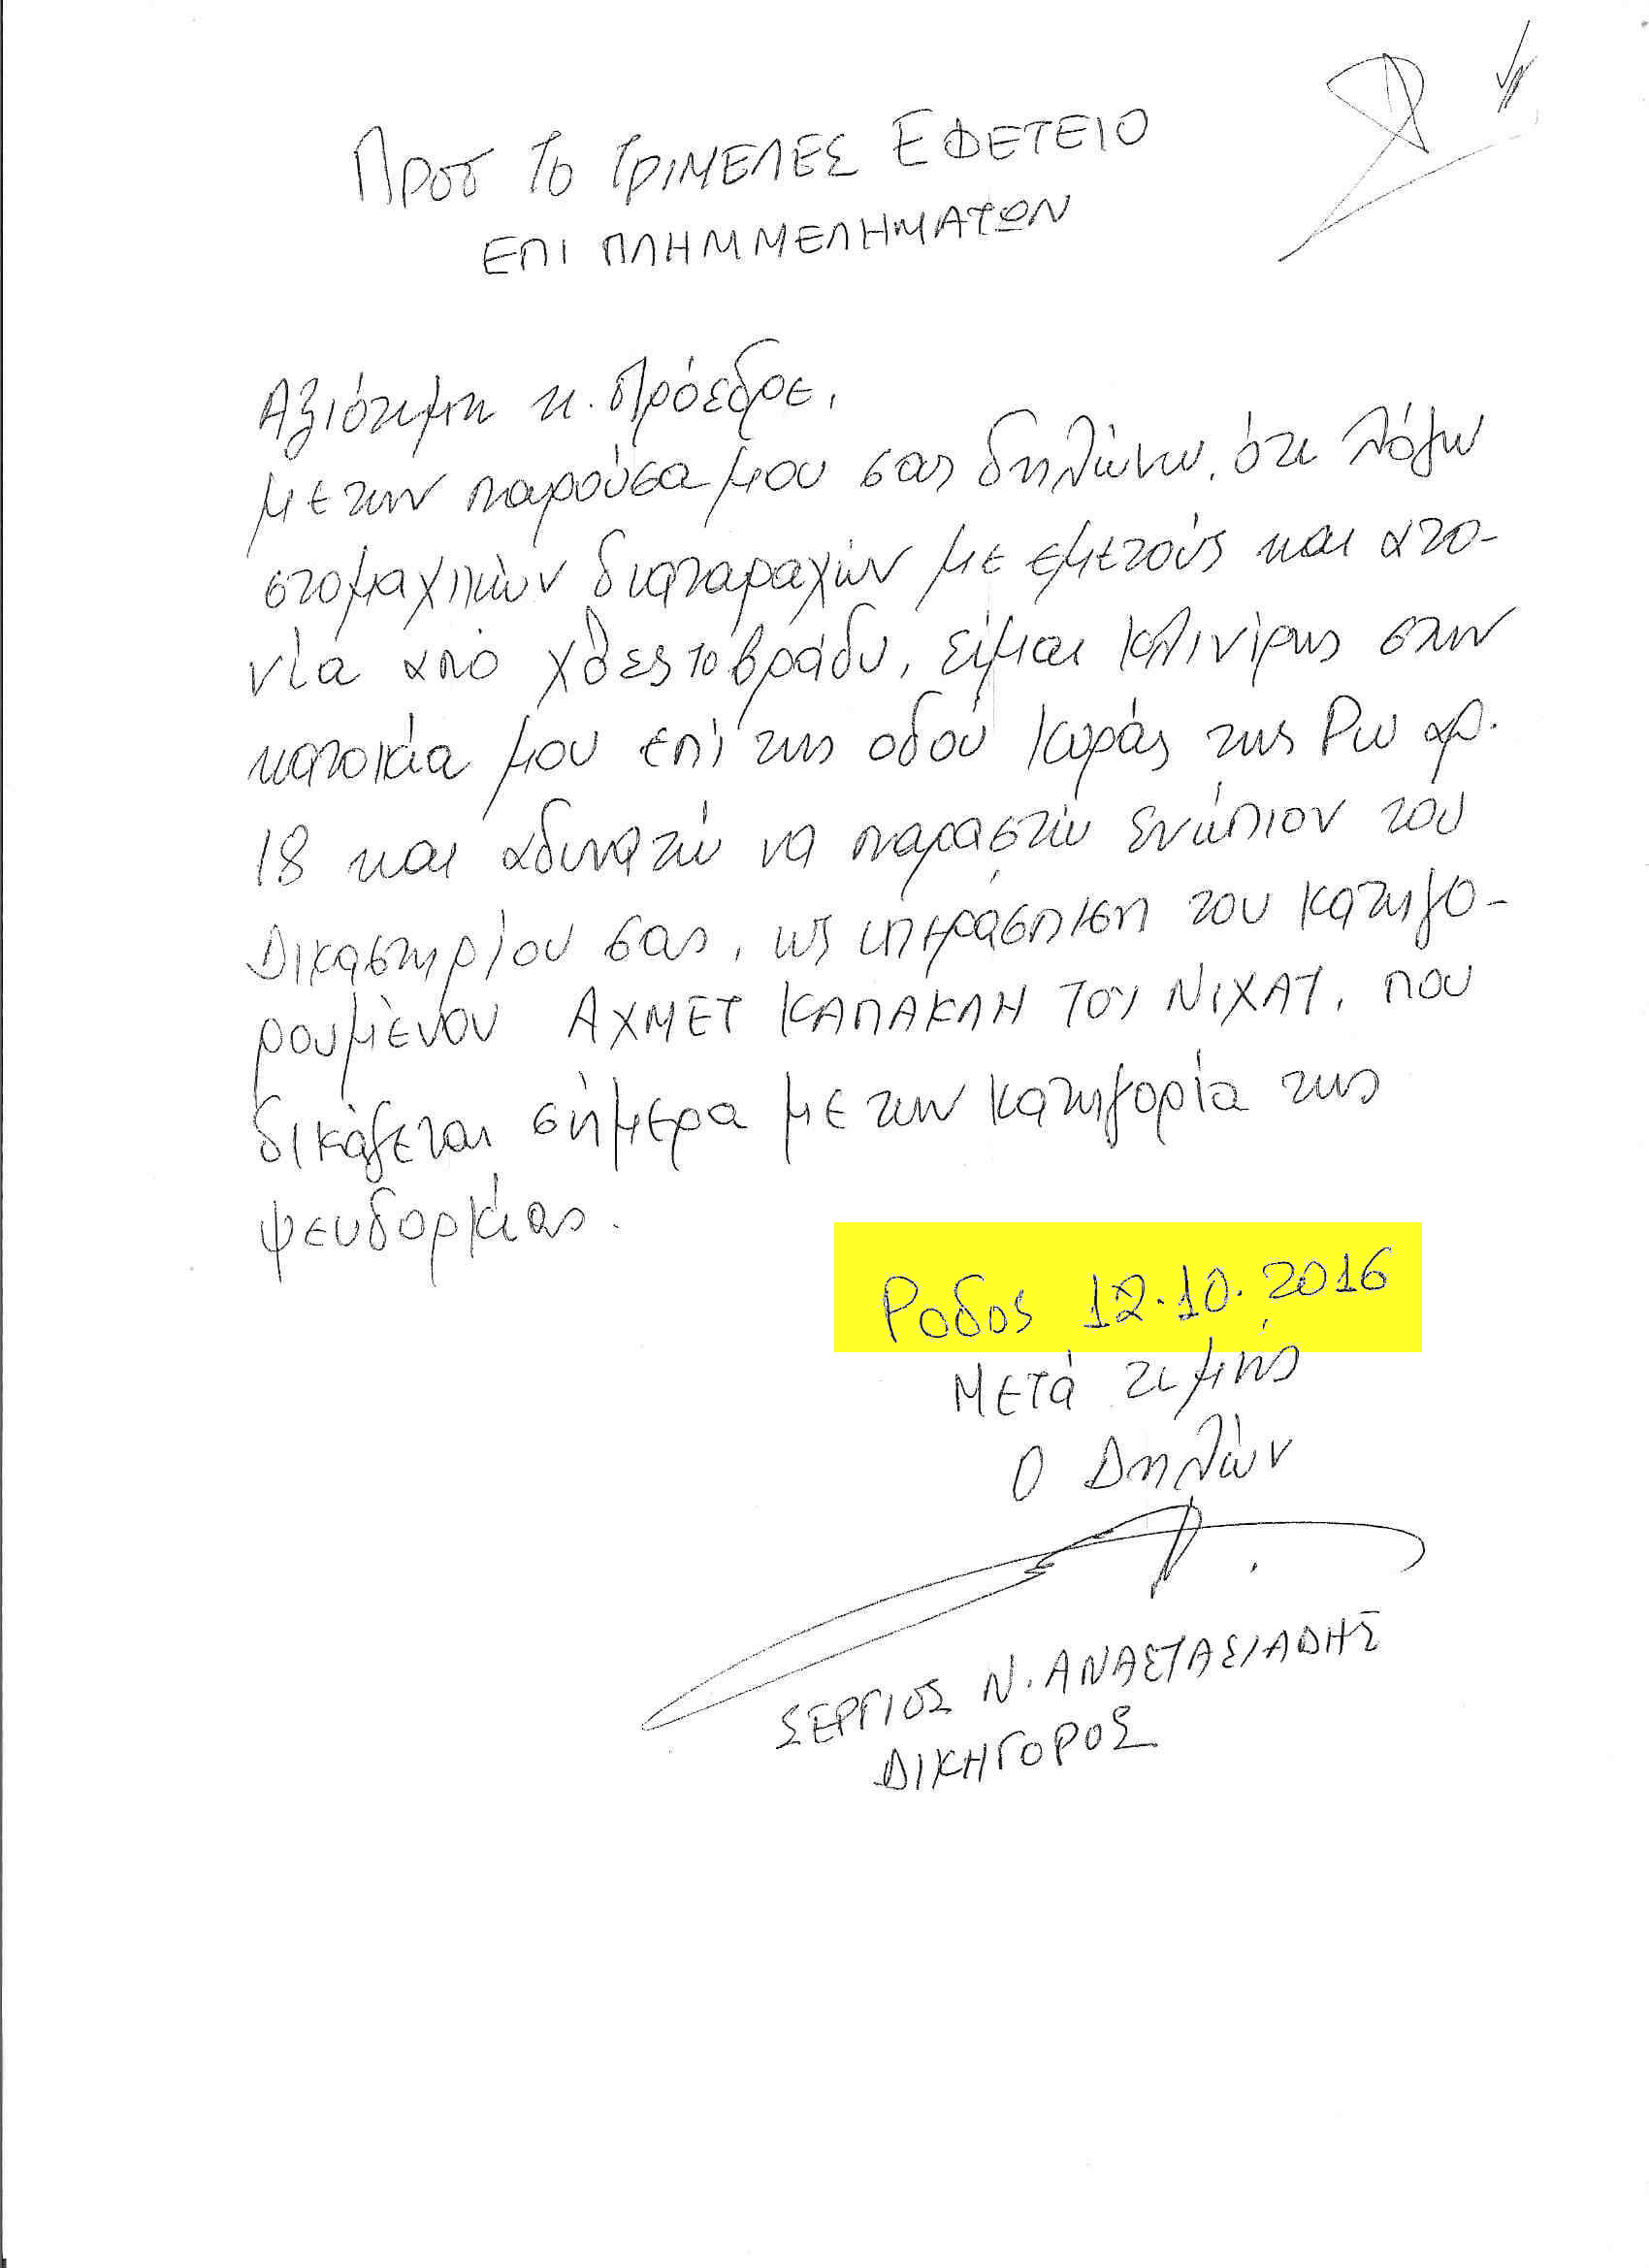 Προς Το ΤΡΙΜΕΛΕΣ ΕΦΕΤΕΙΟ
ΕΠΙ ΠΛΗΜΜΕΛΗΜΑΤΩΝ
Αξιότιμε κ. Πρόεδρε,
με την παρούσα μου σας δηλώνω, ότι λόγω
στομαχικών διαταραχών με εμετούς και ατο-
νία από χθες το βράδυ, είμαι κλινήρης στην
κατοικία μου επί της οδού Κυράς της Ρω αρ.
18 και αδυνατώ να παραστώ ενώπιον του
Δικαστηρίου σας, ως υπεράσπιση του κατηγο-
ρουμένου ΑΧΜΕΤ ΚΑΠΑΚΛΗ ΤΟΥ ΝΙΧΑΤ, που
δικάζεται σήμερα με την κατηγορία της
ψευδορκίας.
Ροδος 12.10.2016
Μετά τιμής
Ο Δηλών
ΣΕΡΓΙΟΣ Ν. ΑΝΑΣΤΑΣΙΑΔΗΣ
ΔΙΚΗΓΟΡΟΣ